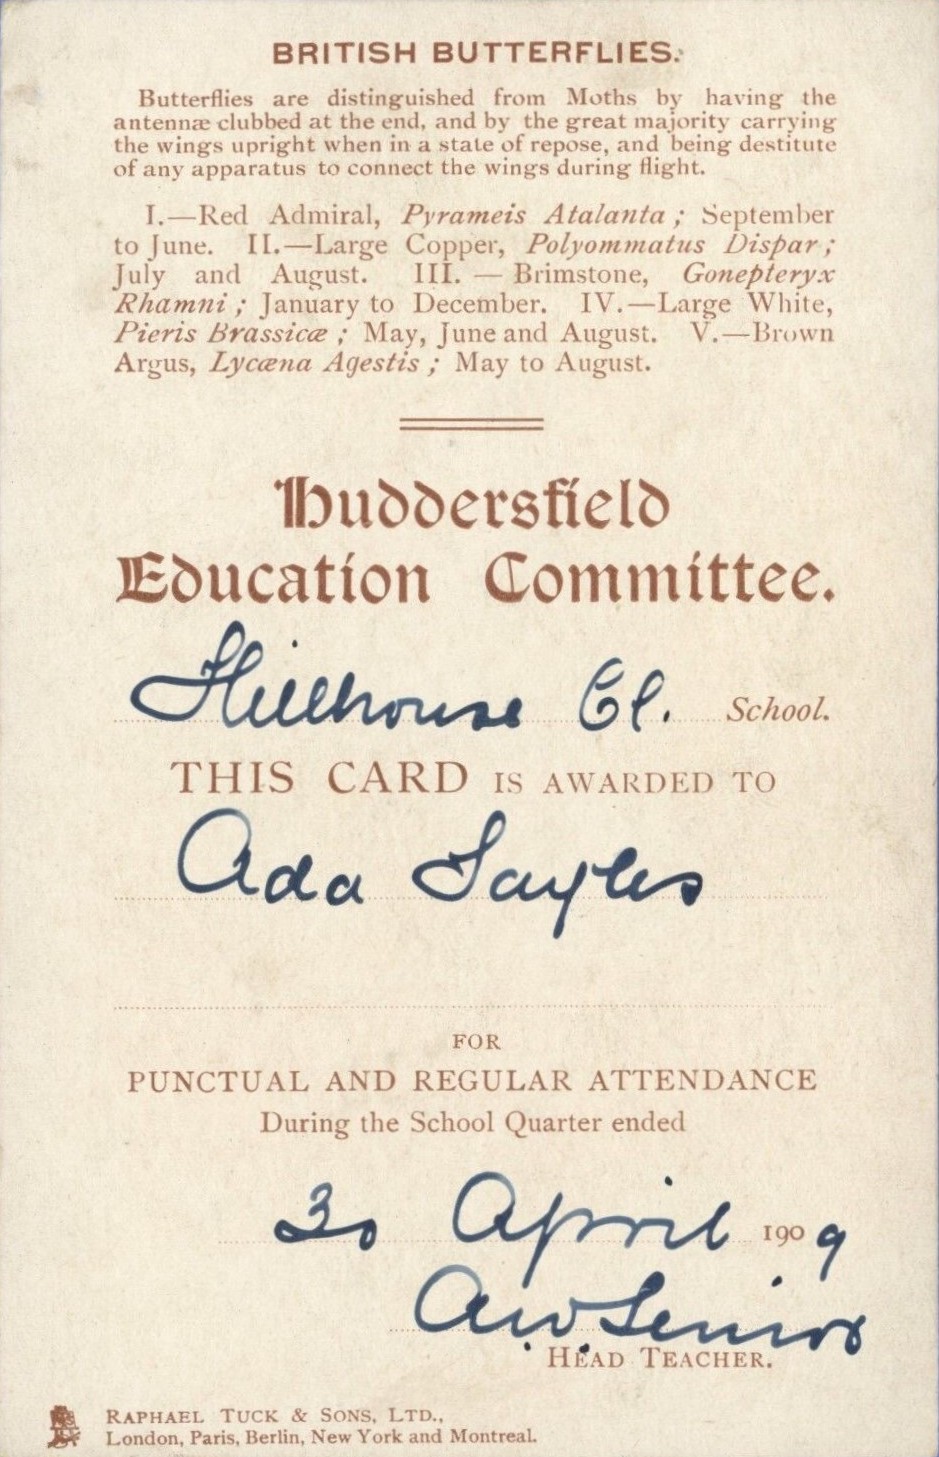 BRITISH BUTTERFLIES.
Butterflies are distinguished from Moths by having the
antennæ clubbed at the end, and by the great majority carrying
the wings upright when in a state of repose, and being destitute
of any apparatus to connect the wings during flight.
I.—Red Admiral, Pyrameis Atalanta; September
to June. II.—Large Copper, Polyommatus Dispar;
July and August. III. — Brimstone, Gonepteryx
Rhamni; January to December. IV.—Large White,
Pieris Brassicæ; May, June and August. V.—Brown
Argus, Lycæna Agestis; May to August.
Huddersfield
Education Committee.
Hillhouse Cl. School.
THIS CARD IS AWARDED TO
Ada Sayles
FOR
PUNCTUAL AND REGULAR ATTENDANCE
During the School Quarter ended
30 April 1909
A.W. Senior
HEAD TEACHER.
RAPHAEL TUCK & SONS, LTD.,
London, Paris, Berlin, New York and Montreal.